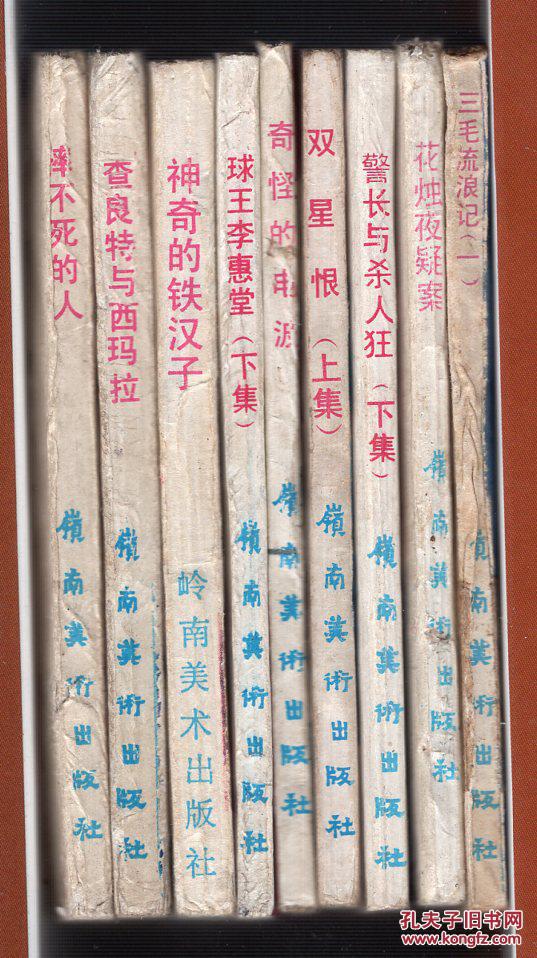 摔不死的人
嶺南美術出版社
查良特与西玛拉
嶺南美術出版社
神奇的铁汉子
岭南美术出版社
球王李惠堂（下集）
嶺南美術出版社
奇怪的电波
嶺南美術出版社
双星恨（上集）
嶺南美術出版社
警长与杀人狂（下集）
嶺南美術出版社
花烛夜疑案
嶺南美術出版社
三毛流浪记（一）
嶺南美術出版社
孔夫子旧书网
www.kongfz.com